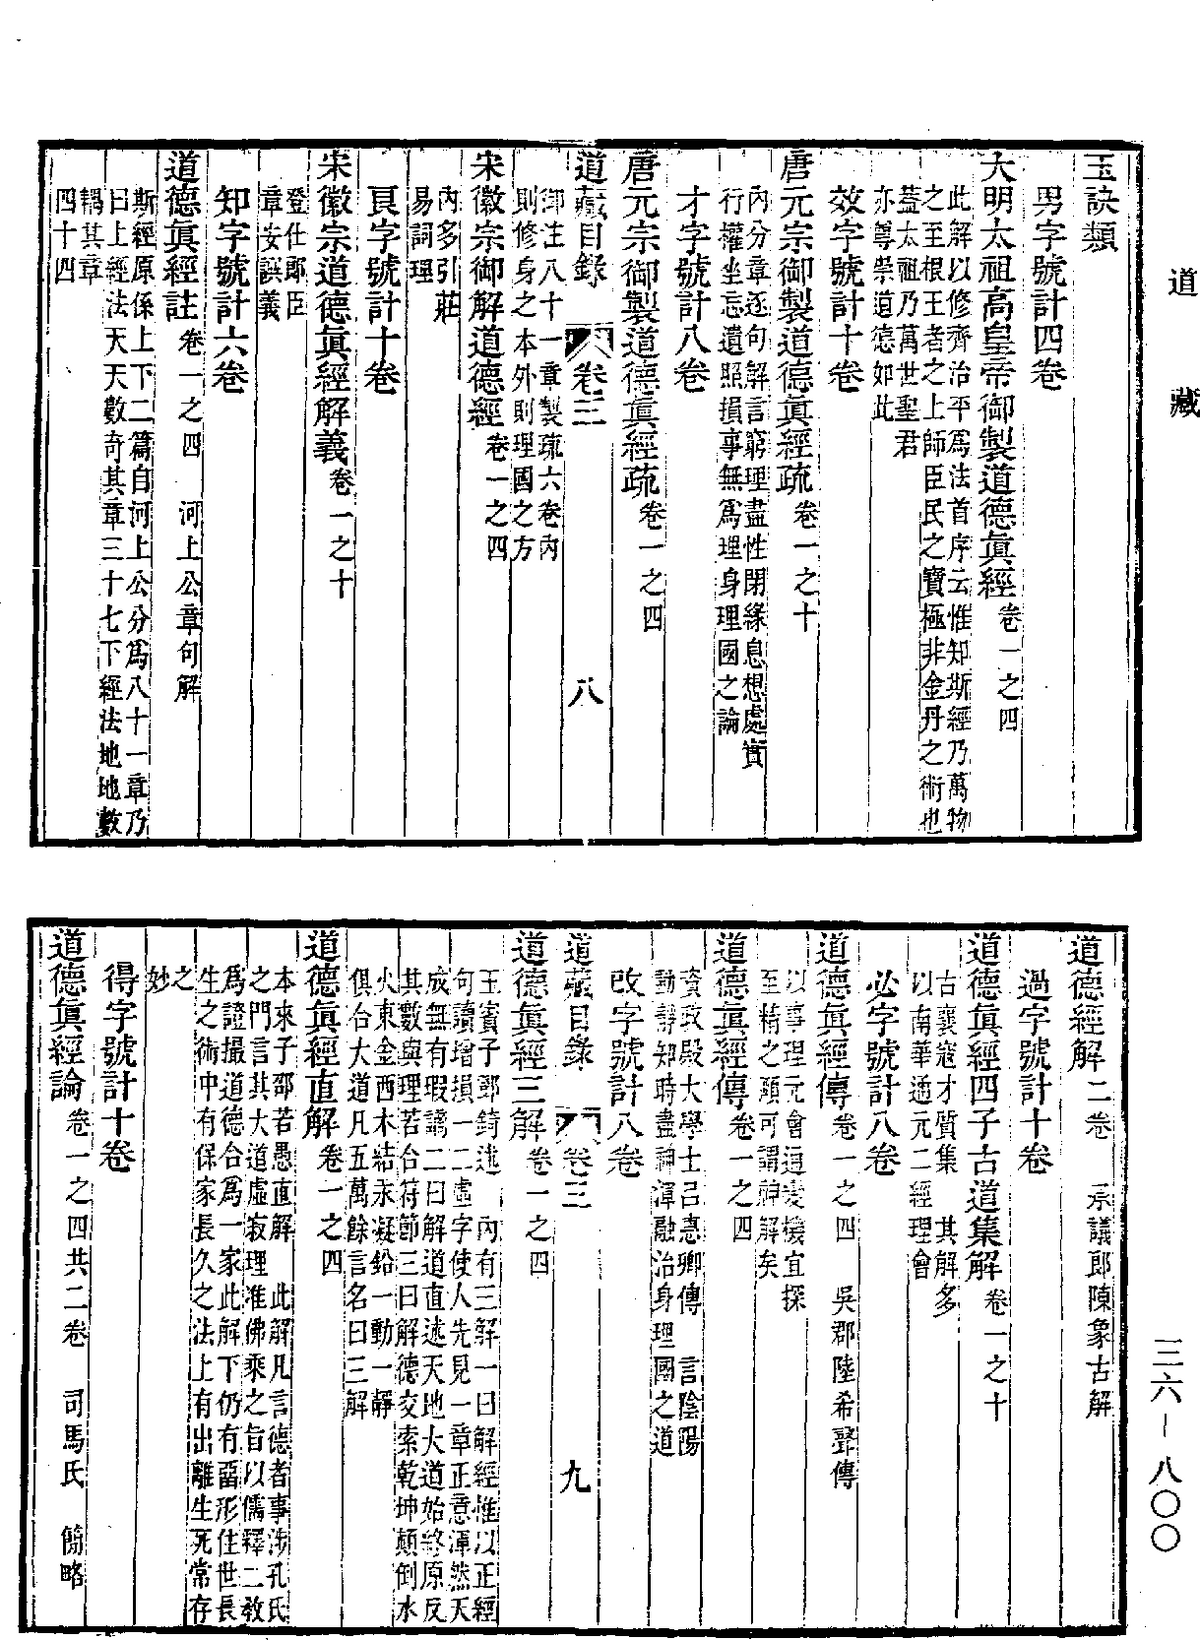 道藏
玉訣類
男字號計四卷
大明太祖高皇帝御製道德眞經卷一之四
此解以修齊治平爲法首序云惟知斯經乃萬物
之至根王者之上師臣民之寶極非金丹之術也
蓋太祖乃萬世聖君
亦尊崇道德如此
效字號計十卷
唐元宗御製道德眞經疏卷一之十
內分章逐句解言窮理盡性閉緣息想處實
行權坐忘遺照損事無爲理身理國之論
才字號計八卷
唐元宗御製道德眞經疏卷一之四
道藏目錄 卷三 八
御注八十一章製疏六卷內
則修身之本外則理國之方
宋徽宗御解道德經卷一之四
內多引莊
易詞理
良字號計十卷
宋徽宗道德眞經解義卷一之十
登仕郎臣
章安譔義
知字號計六卷
道德眞經註卷一之四 河上公章句解
斯經原係上下二篇自河上公分爲八十一章乃
曰上經法天天數奇其章三十七下經法地地數
耦其章
四十四
道德經解二卷 承議郎陳象古解
過字號計十卷
道德眞經四子古道集解卷一之十
古襄寇才質集 其解多
以南華通元二經理會
必字號計八卷
道德眞經傳卷一之四 吳郡陸希聲傳
以事理元會通変機宜探
至精之頤可謂神解矣
道德眞經傳卷一之四
資政殿大學士呂惠卿傳 言陰陽
動靜知時盡神渾融治身理國之道
改字號計八卷
道藏目錄 卷三 九
道德眞經三解卷一之四
玉賓子鄧錡述 內有三解一曰解經惟以正經
句讀增損一二虛字使人先見一章正意渾然天
成無有瑕讁二曰解道直述天地大道始終原反
其數與理若合符節三曰解德交索乾坤顛倒水
火東金西木結汞凝鉛一動一靜
俱合大道凡五萬餘言名曰三解
道德眞經直解卷一之四
本來子邵若愚直解 此解凡言德者事涉孔氏
之門言其大道虛寂理准佛乘之旨以儒釋二敎
爲證撮道德合爲一家此解下仍有畱形住世長
生之術中有保家長久之法上有出離生死常存
之
妙
得字號計十卷
道德眞經論卷一之四共二卷 司馬氏 簡略
三六－八〇〇